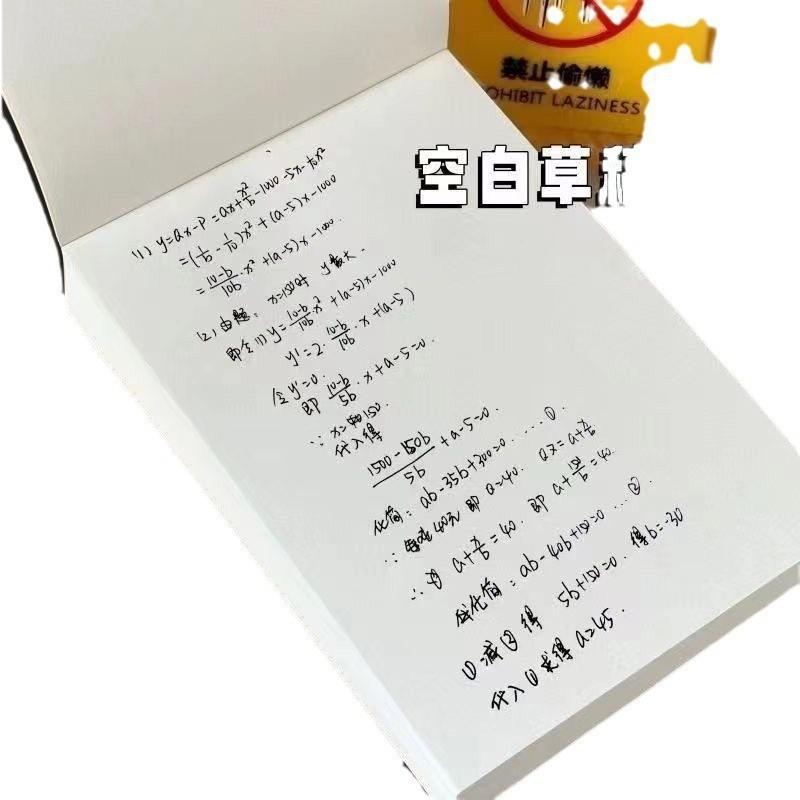 禁止偷懒
OHIBIT LAZINESS
空白草
(1) y=ax-p=ax+x²/b-1000-5x-1/10x²
=(1/b-1/10)x²+(a-5)x-1000
=10-b/10b·x²+(a-5)x-1000.
(2)由题:x=150时 y最大.
即令(1)y=10-b/10b x²+(a-5)x-1000
y'=2·10-b/10b·x+(a-5)
令y'=0.
即 10-b/5b·x+a-5=0.
∵x=150.
代入得
1500-150b/5b+a-5=0.
化简:ab-35b+300=0.....①.
∵ 40元 即 Q=40. Q=a+x/b
∴ a+x/b=40. 即 a+150/b=40.
化简:ab-40b+150=0...②.
①减②得 5b+150=0. 得b=-30
代入①求得a=45.